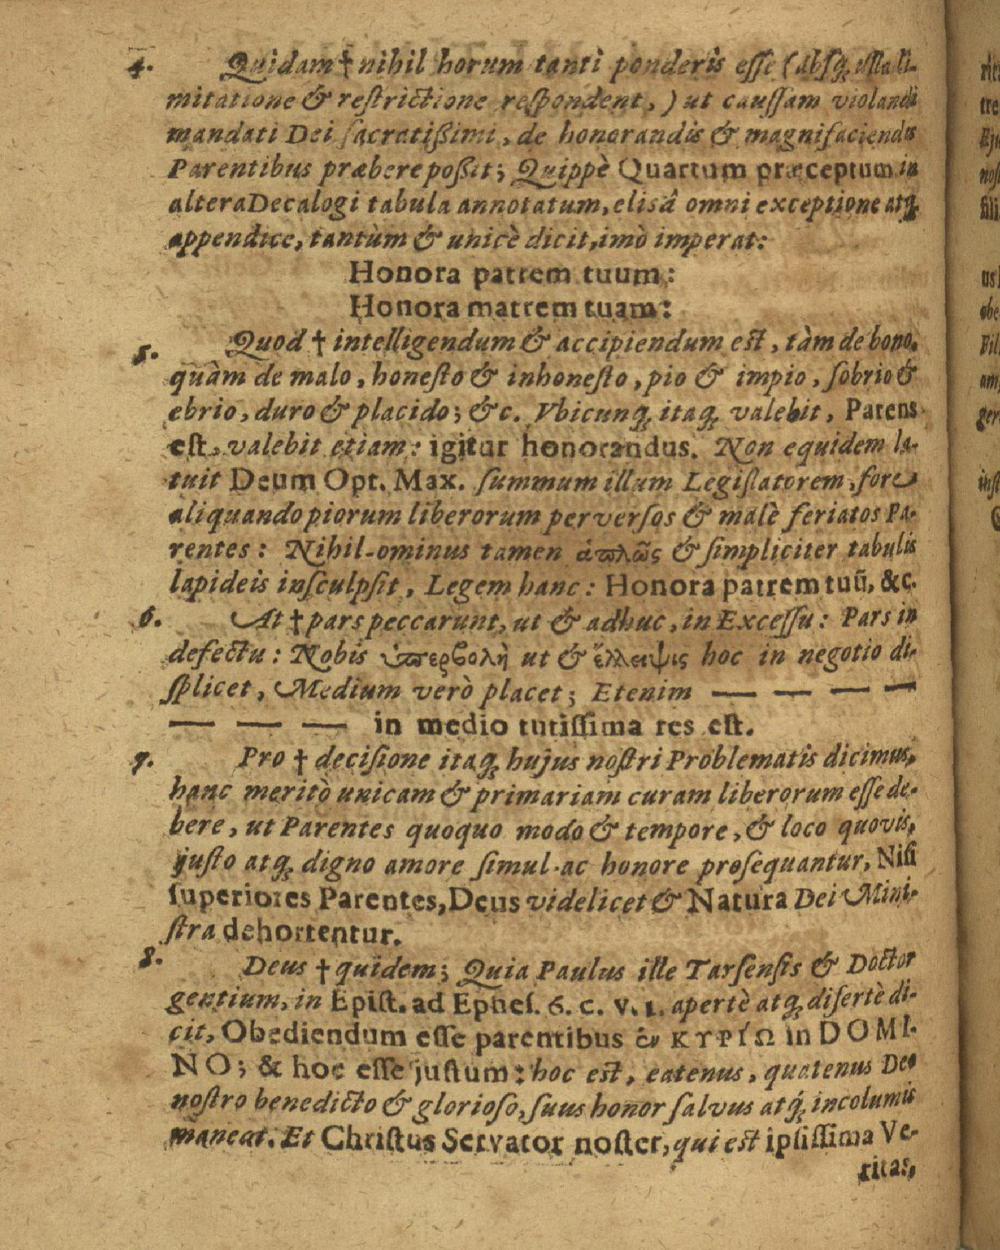 4. Quidam † nihil horum tanti ponderis esse (absq́; ulla li-
mitatione & restrictione respondent,) ut caussam violandi
mandati Dei sacratißimi, de honorandis & magnifaciendis
Parentibus præbere poßit; Quippè Quartum præceptum in
altera Decalogi tabula annotatum, elisâ omni exceptione atq́;
appendice, tantùm & unicè dicit, imò imperat:
Honora patrem tuum:
Honora matrem tuam:
5. Quod † intelligendum & accipiendum est, tàm de bono,
quàm de malo, honesto & inhonesto, pio & impio, sobrio &
ebrio, duro & placido; &c. Vbicunq́; itaq́; valebit, Parens
est, valebit etiam: igitur honorandus. Non equidem la-
tuit Deum Opt. Max. summum illum Legislatorem, fore
aliquando piorum liberorum perversos & malè feriatos Pa-
rentes: Nihil-ominus tamen ἁπλῶς & simpliciter tabulis
lapideis insculpsit, Legem hanc: Honora patrem tuũ, &c.
6. At † pars peccarunt, ut & adhuc, in Excessu: Pars in
defectu: Nobis ὑπερβολὴ ut & ἔλλειψις hoc in negotio di-
splicet, Medium verò placet; Etenim — — — —
— — — in medio tutissima res est.
7. Pro † decisione itaq́; hujus nostri Problematis dicimus,
hanc meritò unicam & primariam curam liberorum esse de-
bere, ut Parentes quoquo modo & tempore, & loco quovis,
justo atq́; digno amore simul-ac honore prosequantur, Nisi
superiores Parentes, Deus videlicet & Natura Dei Mini-
stra dehortentur.
8. Deus † quidem; Quia Paulus ille Tarsensis & Doctor
gentium, in Epist. ad Ephes. 6. c. v. 1. apertè atq́; disertè di-
cit, Obediendum esse parentibus ἐν ΚΥΡΊΩ in DOMI-
NO; & hoc esse justum: hoc est, eatenus, quatenus Deo
nostro benedicto & glorioso, suus honor salvus atq́; incolumis
maneat. Et Christus Servator noster, qui est ipsissima Ve-
ritas,